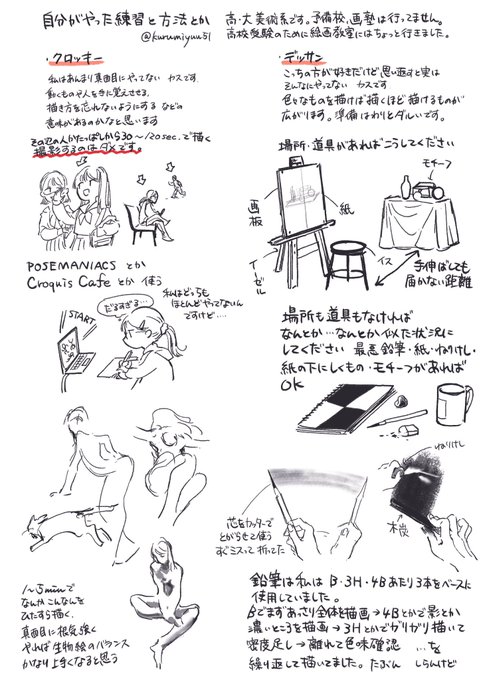 自分がやった練習と方法とか
@kurumiyuu51
高・大美術系です。予備校、画塾は行ってません。
高校受験のために絵画教室にはちょっと行きました。
・クロッキー
私はあんまり真面目にやってない カスです
動くものや人を手に覚えさせる、
描き方を忘れないようにする などの
意味があるのかなと思います
その辺の人かたっぱしから30~120sec.で描く
撮影するのはダメです。
POSEMANIACS とか
Croquis Cafe とか 使う
START
だるすぎる…
私はどっちも
ほとんどやってないん
ですけど…
1~5minで
なんかこんなんを
ひたすら描く、
真面目に根気強く
やれば生物絵のバランス
かなり上手くなると思う
・デッサン
こっちの方が好きだけど思い返すと実は
そんなにやってない カスです
色々なものを描けば描くほど描けるものが
広がります。準備はわりとダルいです。
場所・道具があればこうしてください
モチーフ
画板
紙
イス
イーゼル
手伸ばしても
届かない距離
場所も道具もなければ
なんとか…なんとか似た状況に
してください 最悪鉛筆・紙・ねりけし・
紙の下にしくもの・モチーフがあれば
OK
ねりけし
芯をカッターで
とがらせて使う
すぐミスって折ってた
木炭
鉛筆は私は B・3H・4Bあたり3本をベースに
使用していました。
Bでまずあっさり全体を描画→4Bとかで影とか
濃いところを描画→3Hとかでガリガリ描いて
密度足し→離れて色味確認 …を
繰り返して描いてました。たぶん しらんけど